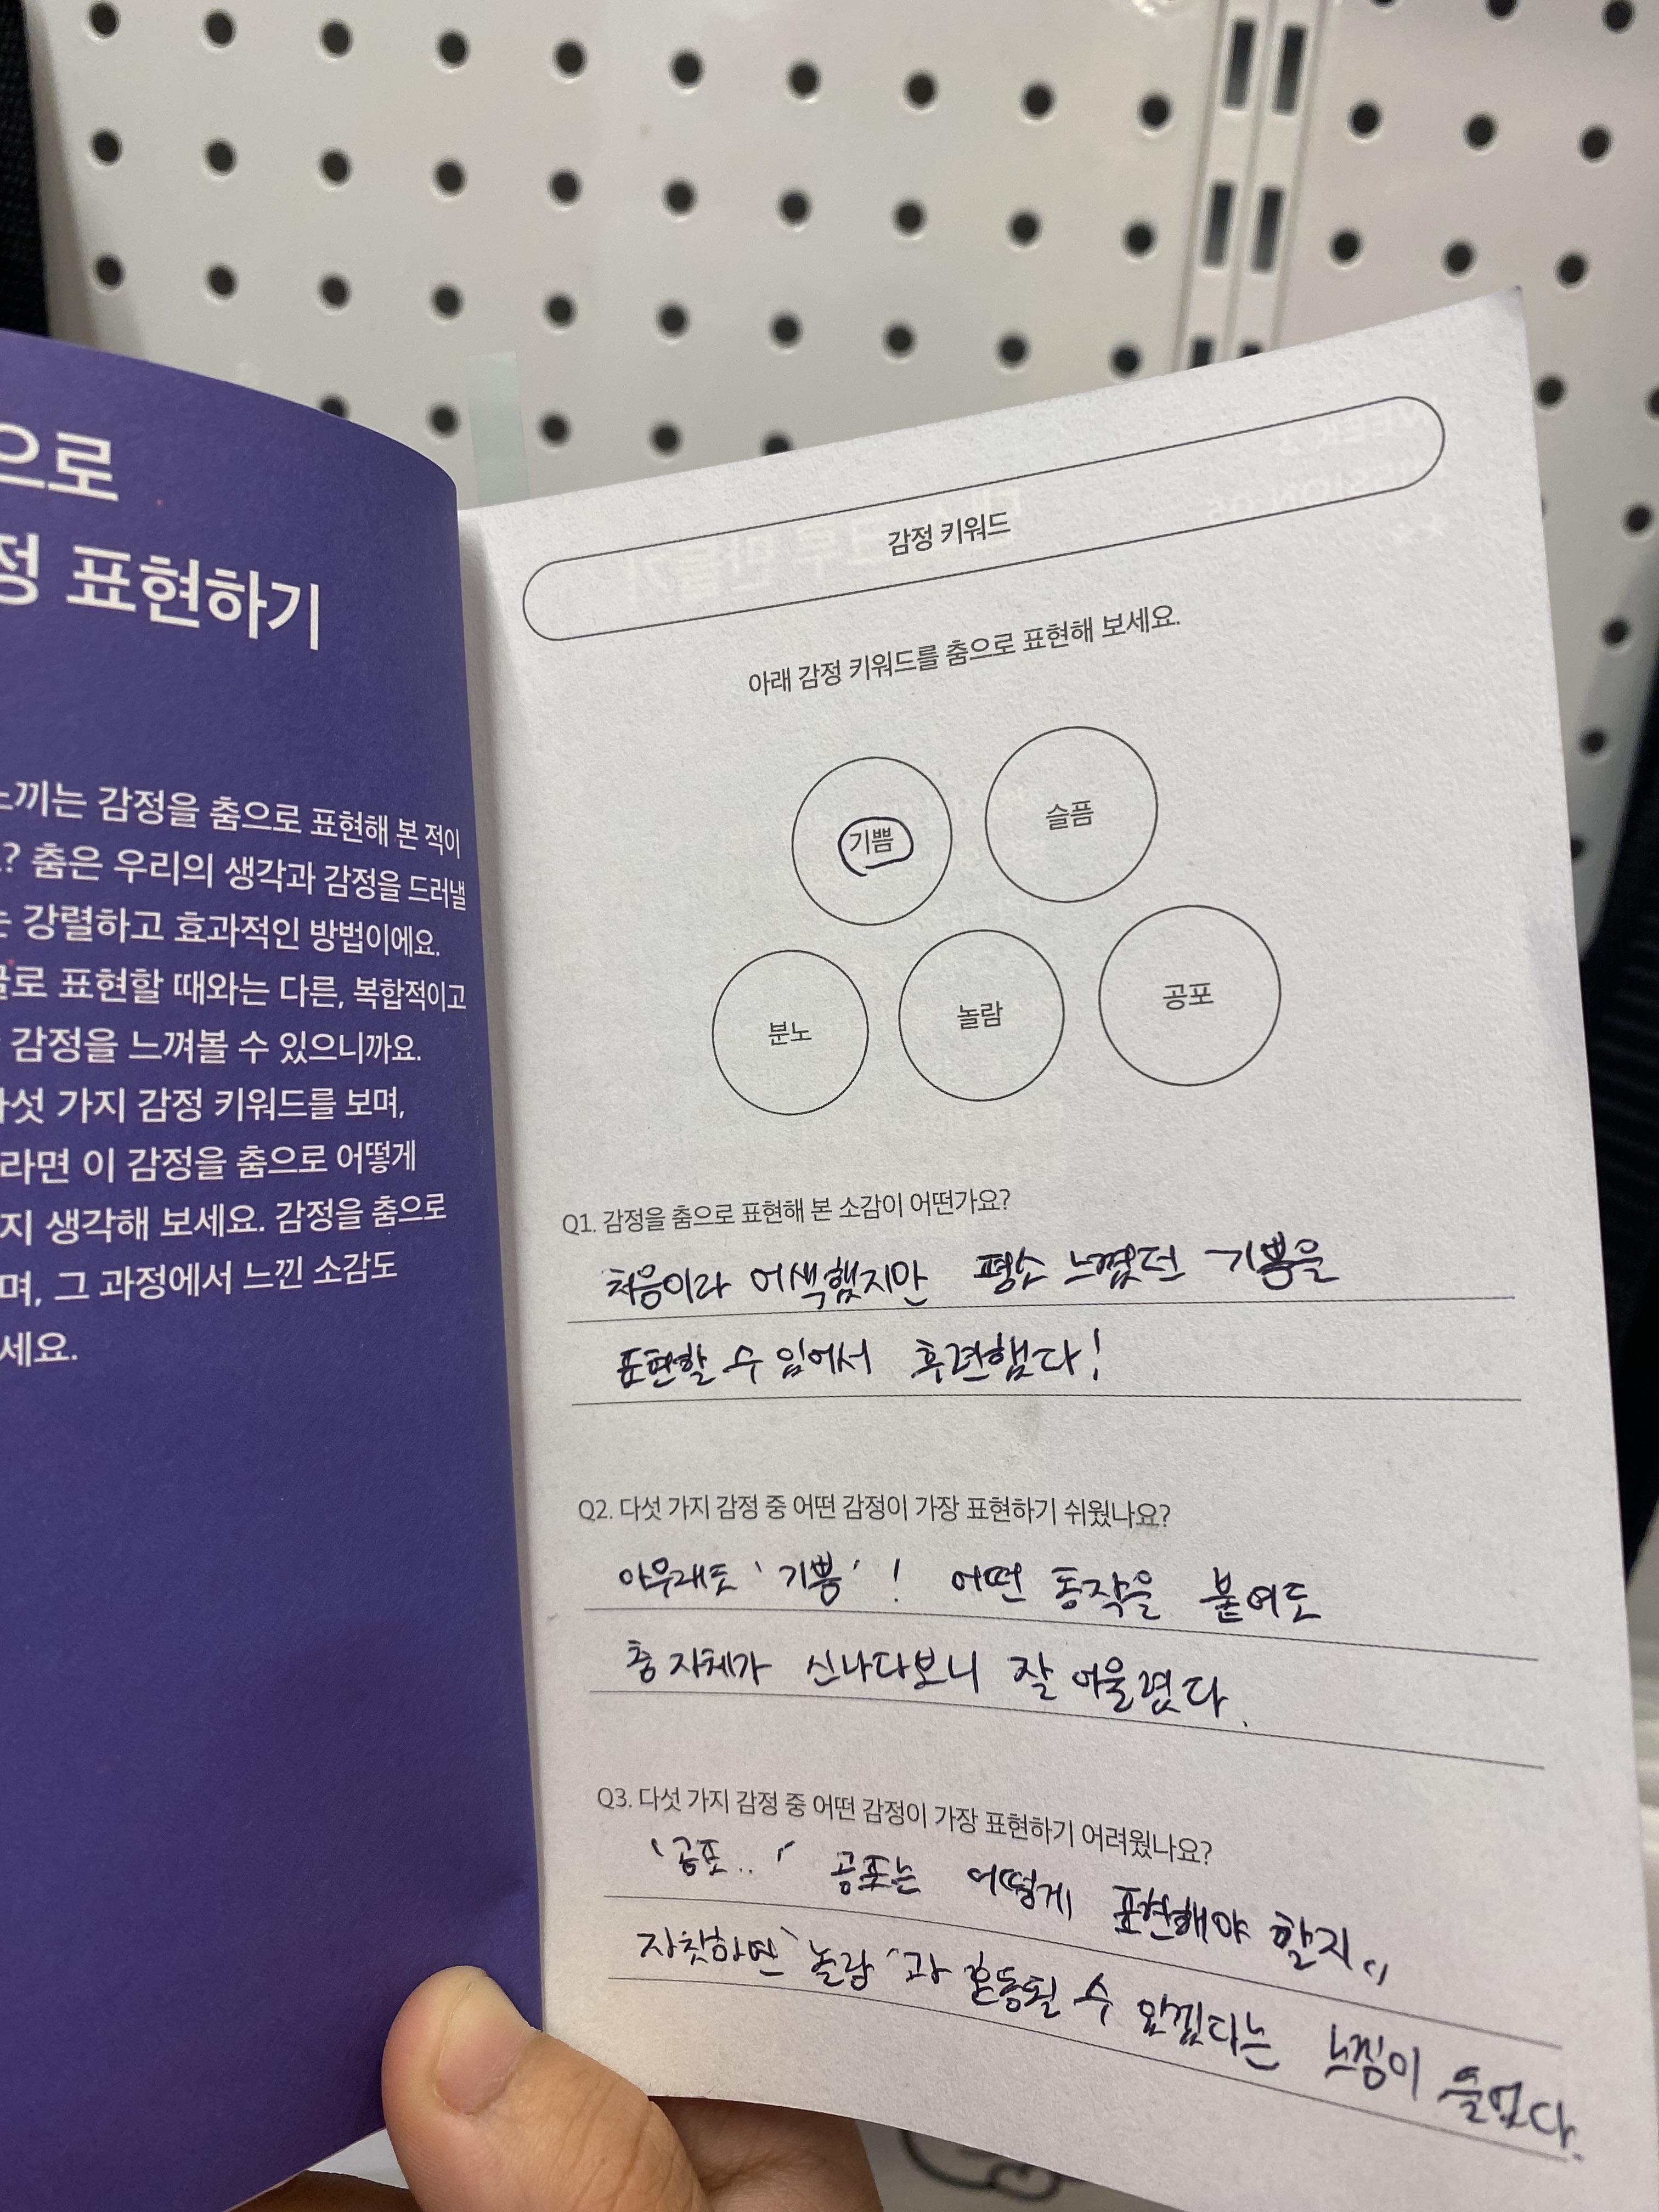 으로
정 표현하기
느끼는 감정을 춤으로 표현해 본 적이
? 춤은 우리의 생각과 감정을 드러낼
는 강렬하고 효과적인 방법이에요.
글로 표현할 때와는 다른, 복합적이고
감정을 느껴볼 수 있으니까요.
다섯 가지 감정 키워드를 보며,
라면 이 감정을 춤으로 어떻게
지 생각해 보세요. 감정을 춤으로
며, 그 과정에서 느낀 소감도
세요.
감정 키워드
아래 감정 키워드를 춤으로 표현해 보세요.
기쁨
슬픔
분노
놀람
공포
Q1. 감정을 춤으로 표현해 본 소감이 어떤가요?
처음이라 어색했지만 평소 느꼈던 기쁨을
표현할 수 있어서 후련했다!
Q2. 다섯 가지 감정 중 어떤 감정이 가장 표현하기 쉬웠나요?
아무래도 '기쁨'! 어떤 동작을 붙여도
춤 자체가 신나다보니 잘 어울렸다.
Q3. 다섯 가지 감정 중 어떤 감정이 가장 표현하기 어려웠나요?
'공포..' 공포는 어떻게 표현해야 할지,,
자칫하면 '놀람'과 혼동될 수 있겠다는 느낌이 들었다.